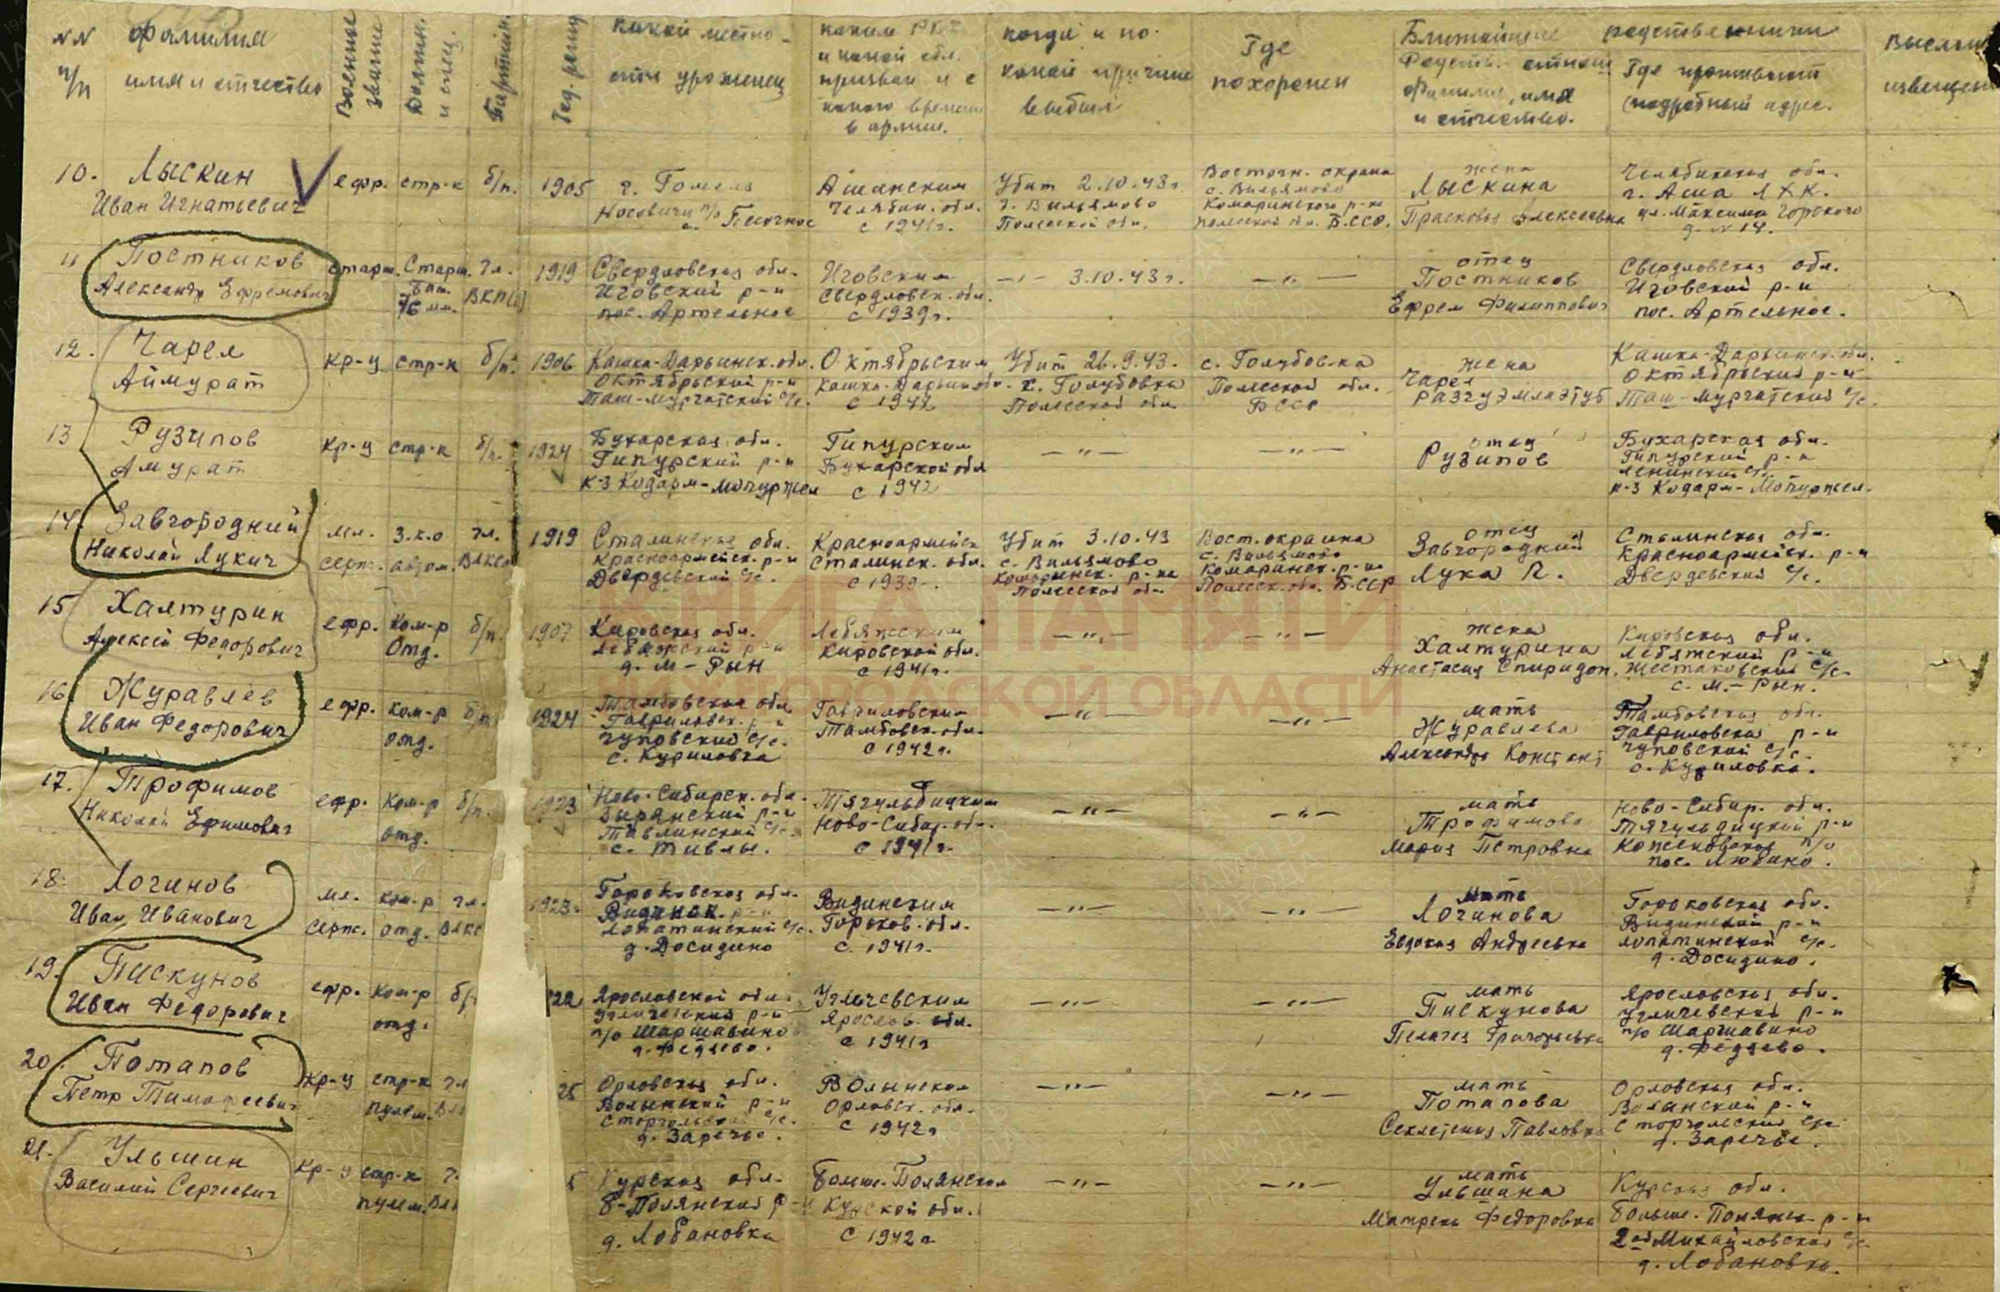 NN п/п
фамилия имя и отчество
Военное звание
Должн. и спец.
Партийн.
Год. рожд
какой местности уроженец
каким РВК и какой обл. призван и с какого времени в армии.
когда и по какой причине выбыл
Где похоронен
Ближайшие родственники
Родств. отнош фамилия, имя и отчество.
Где проживают подробный адрес.
10. Лыскин
Иван Игнатьевич
ефр. стр-к б/п. 1905
г. Гомель
Носовичи п/о с. Песочное
Ашанским
Челябин. обл.
с 1941г.
Убит 2.10.43г.
д. Вильямово
Полесской обл.
Восточн. окраина
с. Вильямово
Комаринского р-на
Полесской обл. Б.ССР.
жена
Лыскина
Прасковья Алексеевна
Челябинская обл.
г. Аша ЛХК.
ул. Максима Горького
д. № 14.
11 Постников
Александр Ефремович
старш. Старш. чл. 1919
бат.
76 мм. ВКП(б)
Свердловская обл.
Иговский р-н
пос. Артельное
Иговским
Свердловск. обл.
с 1939г.
—"— 3.10.43г.
—"—
отец
Постников
Ефрем Филиппович
Свердловская обл.
Иговский р-н
пос. Артельное.
12. Чарел
Аймурат
кр-ц стр-к б/п. 1906
Кашка-Дарьинск. обл.
Октябрьский р-н
Таш-Мургатский с/с.
Октябрьским
Кашка-Дарьин обл.
с 1942
Убит 26.9.43.
с. Голубовка
Полесской обл
с. Голубовка
Полесской обл.
БССР
жена
Чарел
Кашка-Дарьинск. обл.
Октябрьский р-н
Таш-Мургатский с/с.
13 Рузипов
Амурат
кр-ц стр-к б/п. 1924
Бухарская обл.
Гипурский р-н
к-з Кодарм-Мопуржел
Гипурским
Бухарской обл
с 1942
—"—
—"—
отец
Рузипов
Бухарская обл.
Гипурский р-н
Ленинский с/с
к-з Кодарм-Мопуржел.
14. Завгородний
Николай Лукич
мл. з.к.о чл. 1919
серж. ВЛКСМ
Сталинская обл.
Красноармейск. р-н
Двердевский с/с.
Красноармейск
Сталинск. обл.
с 1939г.
Убит 3.10.43
с. Вильямово
Комаринск. р-на
Полесской обл
Вост. окраина
с. Вильямово
Комаринск. р-на
Полесск. обл. Б.ССР
отец
Завгородний
Лука П.
Сталинская обл.
Красноармейск. р-н
Двердевский с/с.
15 Халтурин
Алексей Федорович
ефр. ком-р б/п. 1907
отд.
Кировская обл.
Лебяжский р-н
д. М-Рын
Лебяжским
Кировской обл.
с 1941г.
—"—
—"—
жена
Халтурина
Анастасия Спиридон.
Кировская обл.
Лебяжский р-н
Жестаковский с/с
с. М.-Рын.
16 Журавлев
Иван Федорович
ефр. ком-р б/п 1924
отд.
Тамбовская обл
Гавриловск. р-н
Чуповский с/с.
с. Куриловка
Гавриловским
Тамбовск. обл.
с 1942г.
—"—
—"—
мать
Журавлева
Александра Констант
Тамбовская обл.
Гавриловский р-н
Чуповский с/с.
с. Куриловка.
17. Трофимов
Николай Ефимович
ефр. ком-р б/п. 1923
отд.
Ново-Сибирск. обл.
Зырянский р-н
Тавлинский с/с
с. Тивлы.
Ново-Сибир. обл.
с 1941г.
—"—
—"—
мать
Трофимова
Мария Петровна
Ново-Сибир. обл.
пос. Любино.
18. Логинов
Иван Иванович
мл. ком-р чл. 1923
серж. отд. ВЛКС
Горьковская обл.
Видинск. р-н
Лопатинский с/с.
д. Досидино
Видинским
Горьков. обл.
с 1941г.
—"—
—"—
мать
Логинова
Евдокия Андреевна
Горьковская обл.
Видинский р-н
Лопатинский с/с.
д. Досидино.
19. Пискунов
Иван Федорович
ефр. ком-р б/п 22
отд.
Ярославской обл.
Угличский р-н
п/о Шаршавино
д. Федяево.
Угличевским
Ярослав. обл.
с 1941г
—"—
—"—
мать
Пискунова
Пелагея Григорьевна
Ярославская обл.
Угличевский р-н
п/о Шаршавино
д. Федяево.
20. Потапов
Петр Тимофеевич
кр-ц стр-к чл 25
пулем.
Орловская обл.
Волынский р-н
Сторгольский с/с.
д. Заречье.
Волынским
Орловск. обл.
с 1942г
—"—
—"—
мать
Потапова
Секлетения Павловна
Орловская обл.
Волынский р-н
Сторгольский с/с
д. Заречье.
21. Ульшин
Василий Сергеевич
кр-ц стр-к ч. 5
пулем.
Курская обл.
Б-Полянский р-н
д. Лобановка
Больше-Полянском
Курской обл.
с 1942г
—"—
—"—
мать
Ульшина
Матрена Федоровна
Курская обл.
Больше-Полянск р-н
2ая Михайловская с/с
д. Лобановка.
КНИГА ПАМЯТИ
НИЖЕГОРОДСКОЙ ОБЛАСТИ